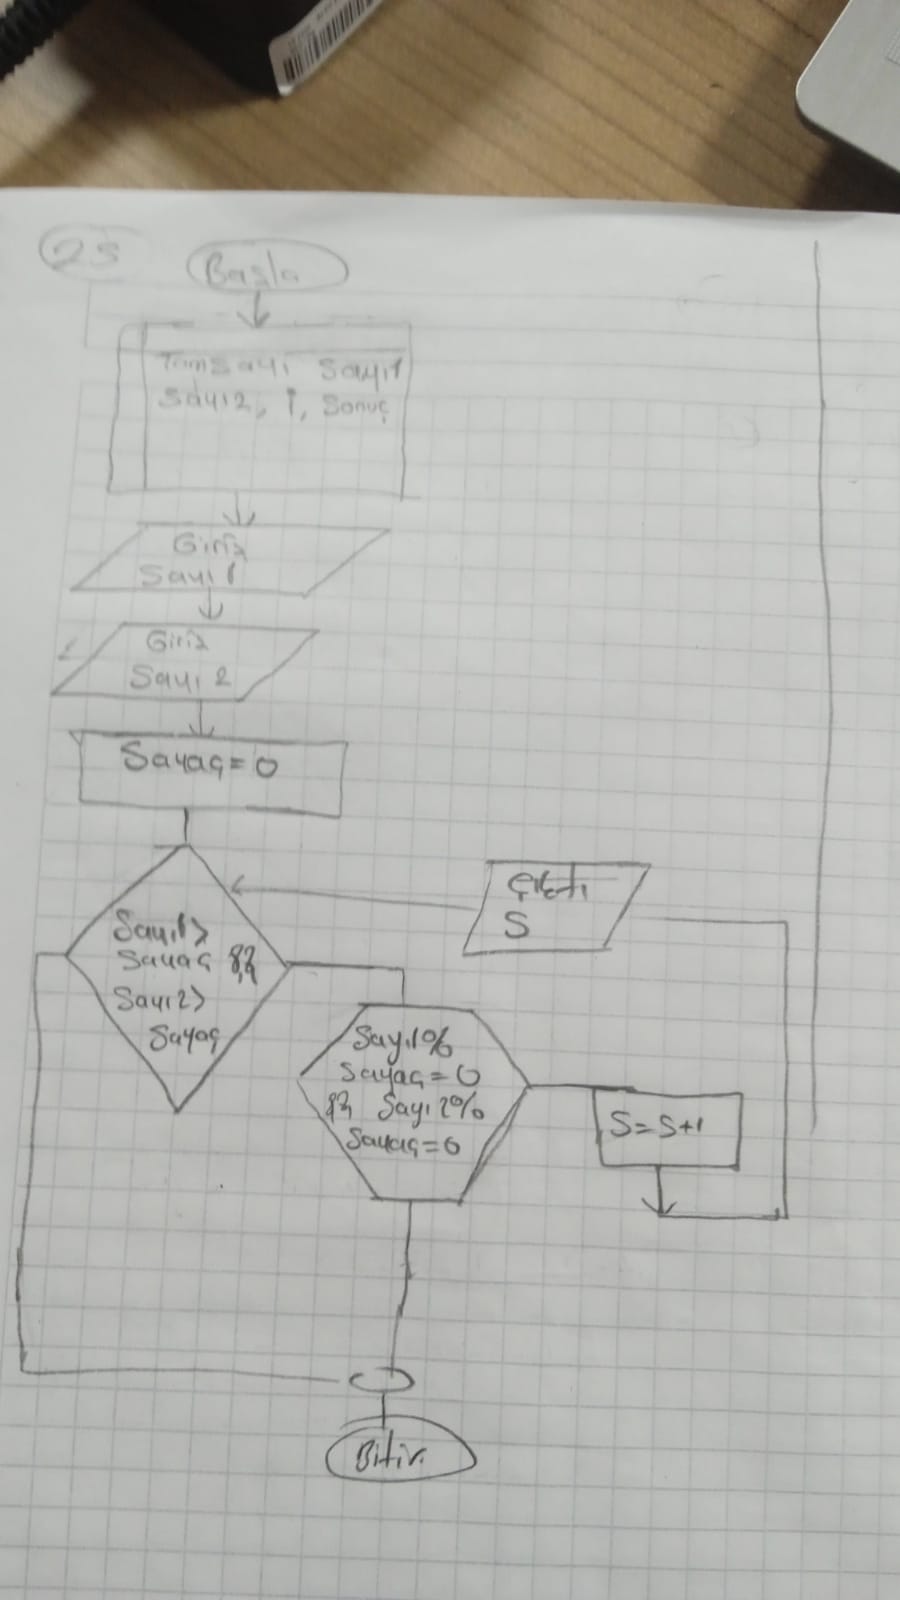 25
Başla
Tamsayı Sayı1
Sayı2, İ, Sonuç
Giriş
Sayı 1
Giriş
Sayı 2
Sayaç = 0
Sayı1 >
Sayaç &&
Sayı2 >
Sayaç
Çıktı
S
Sayı1 %
Sayaç = 0
&& Sayı 2 %
Sayaç = 0
S = S+1
Bitir.